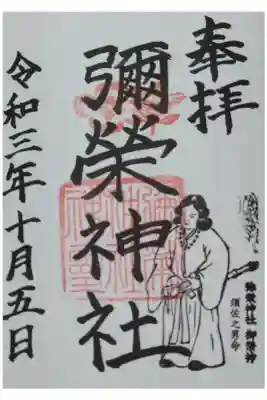 奉拝
彌榮神社
令和三年十月五日
彌榮神社 御祭神
須佐之男命